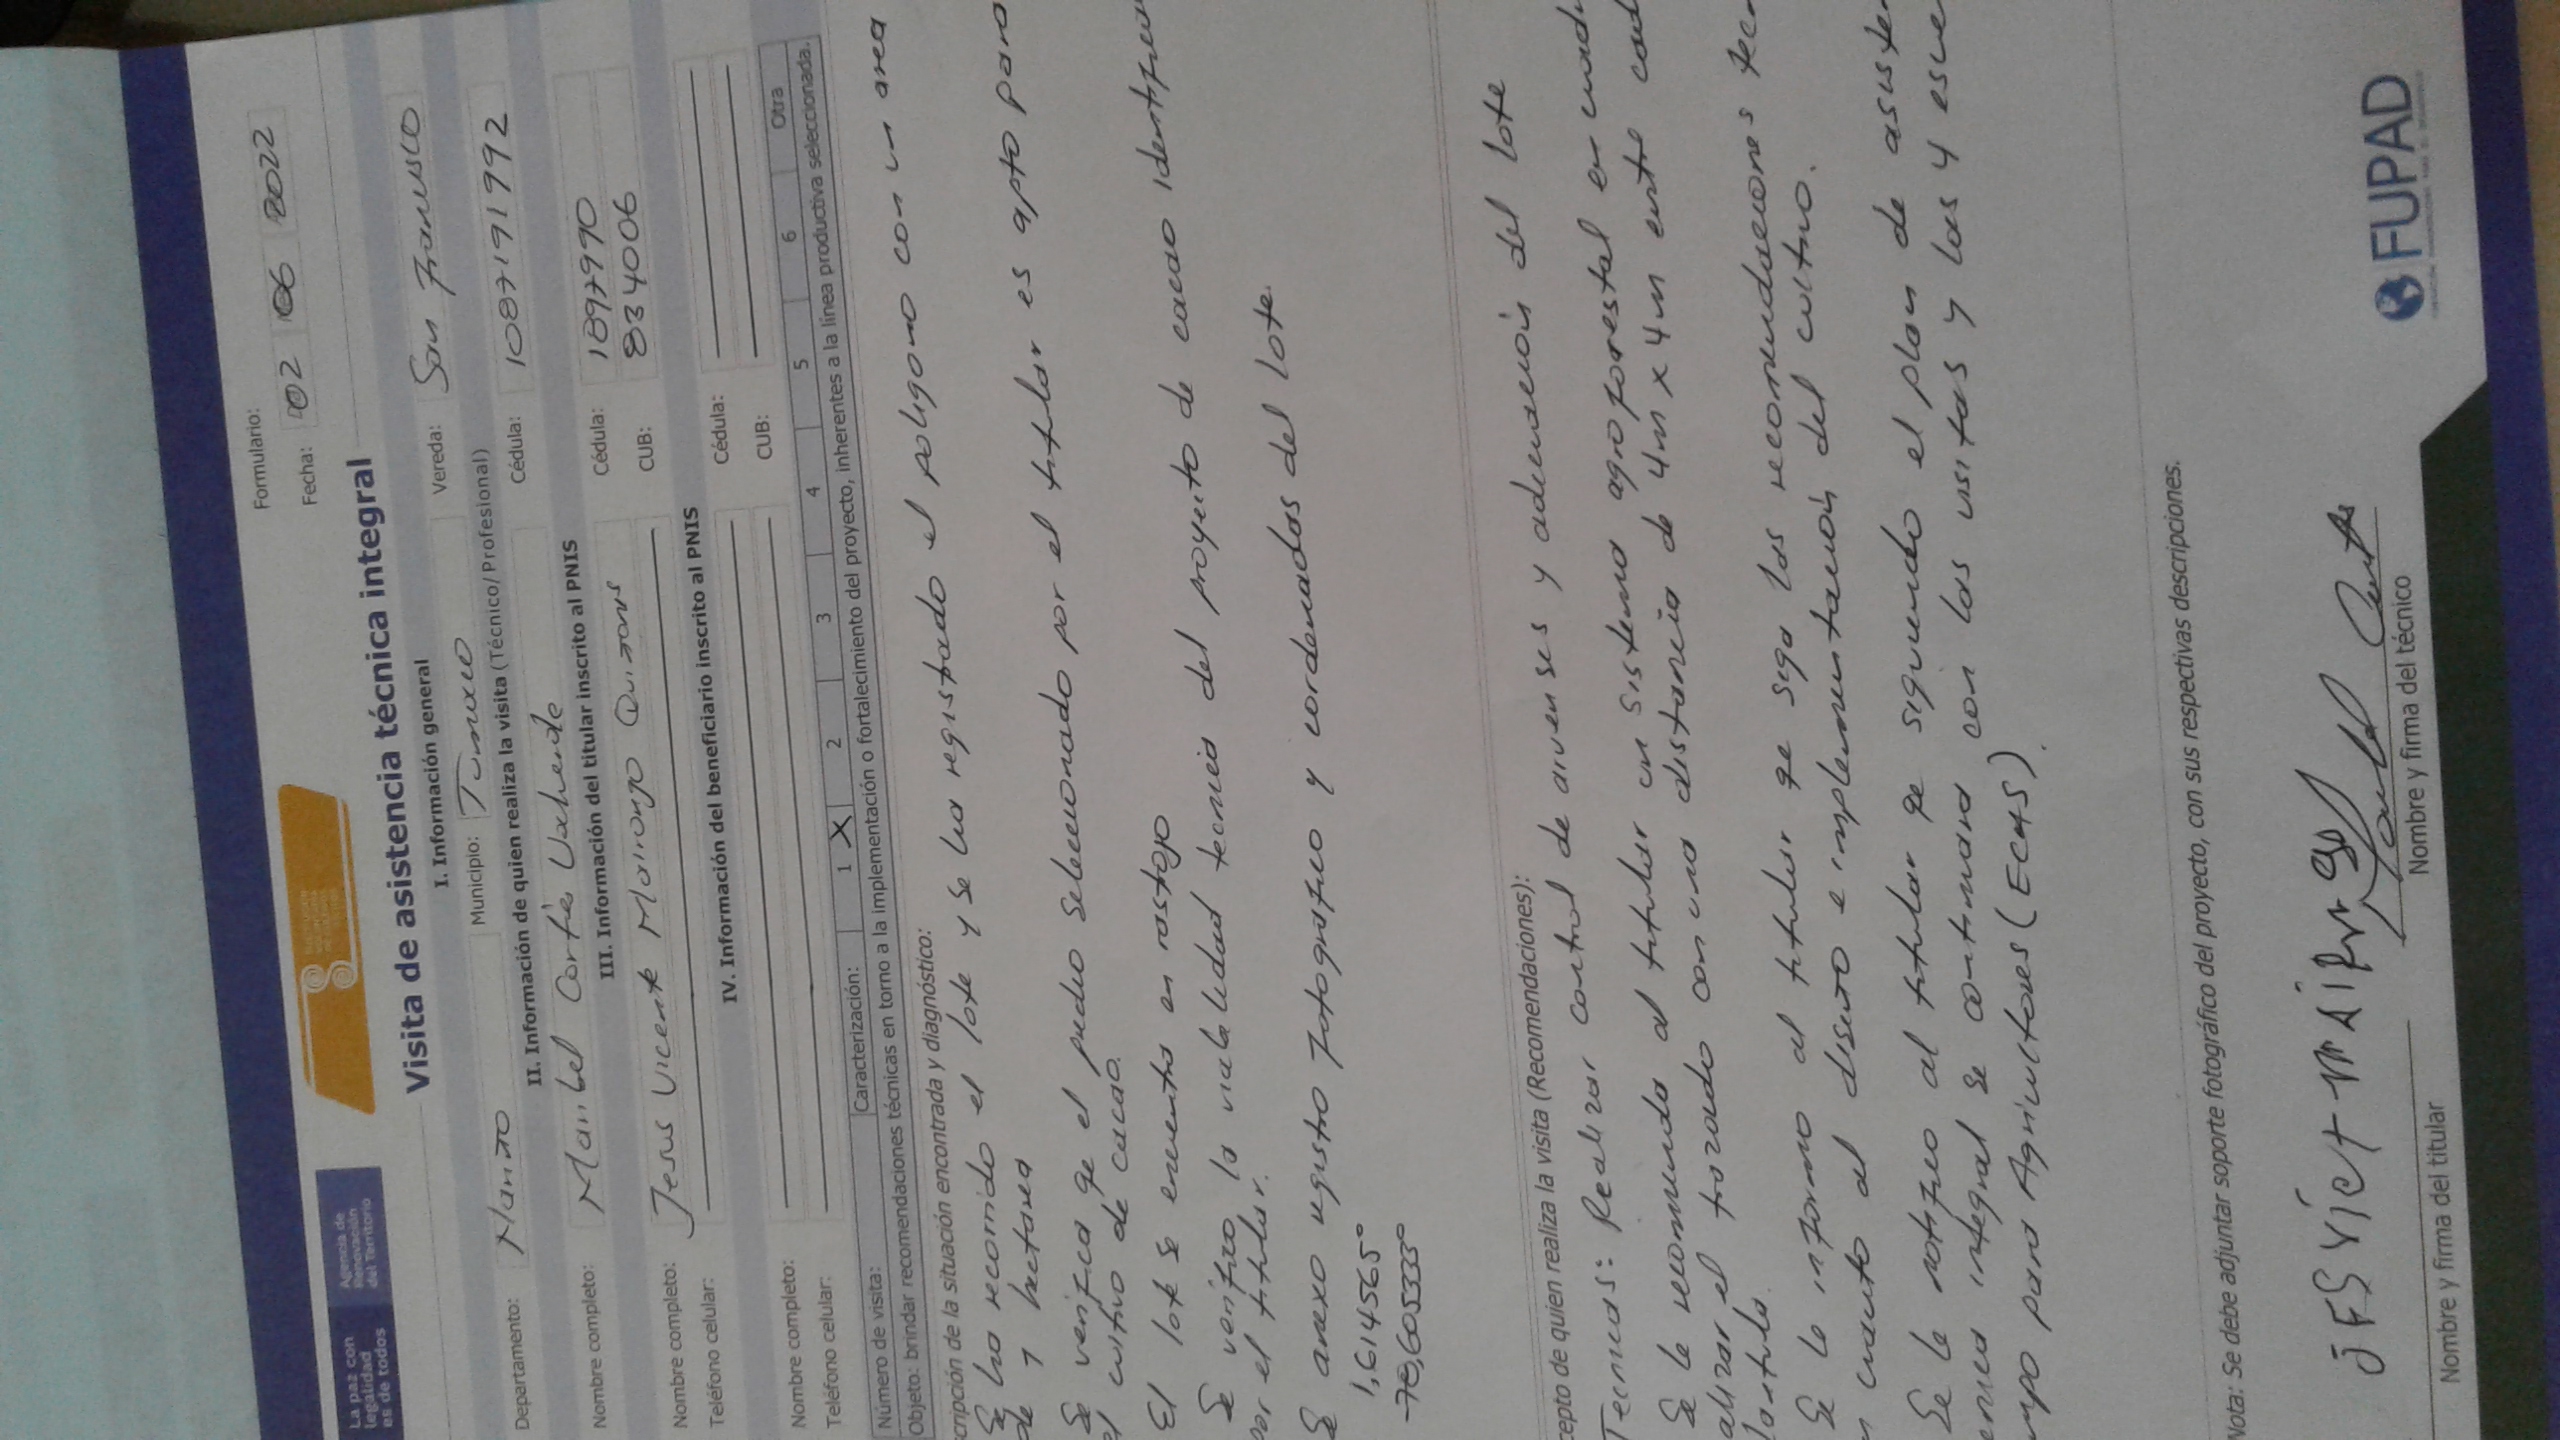 La paz con
legalidad
es de todos
Agencia de
Renovación
del Territorio
Formulario:
Fecha: 02 06 2022
Visita de asistencia técnica integral
I. Información general
Departamento: Nariño Municipio: Tumaco Vereda: San Francisco
II. Información de quien realiza la visita (Técnico/Profesional)
Nombre completo: Maribel Cortés Valverde Cédula: 1087191992
III. Información del titular inscrito al PNIS
Nombre completo: Jesus Vicente Mairongo Quiñons Cédula: 1897990
Teléfono celular: CUB: 834006
IV. Información del beneficiario inscrito al PNIS
Nombre completo: Cédula:
Teléfono celular: CUB:
Número de visita: Caracterización: 1 X 2 3 4 5 6 Otra
Objeto: brindar recomendaciones técnicas en torno a la implementación o fortalecimiento del proyecto, inherentes a la línea productiva seleccionada.
cripción de la situación encontrada y diagnóstico:
Se ha recorrido el lote y se ha registrado el poligono con un area
de 1 hectarea
Se verifica qe el predio seleccionado por el titular es apto para
el cultivo de cacao.
El lote se encuentra en rastrojo
Se verifico la viabilidad tecnica del proyecto de cacao
por el titular.
Se anexo registro fotografico y cordenadas del lote.
1,614565°
-78,605333°
cepto de quien realiza la visita (Recomendaciones):
Tecnicas: Realizar control de arvenses y adecuación del lote
Se le recomienda al titular un sistema agroforestal en
alizar el trazado con una distancia de 4m x 4m entre cad
lantula.
Se le informo al titular qe siga las recomendaciones tecn
n cuanto al diseño e implementación del cultivo.
Se le notifico al titular qe siguiendo el plan de asisten
ecnica integral se continuara con las visitas y las 4 escue
mpo para Agricultores (Ecas).
Nota: Se debe adjuntar soporte fotográfico del proyecto, con sus respectivas descripciones.
Nombre y firma del titular
Nombre y firma del técnico
FUPAD